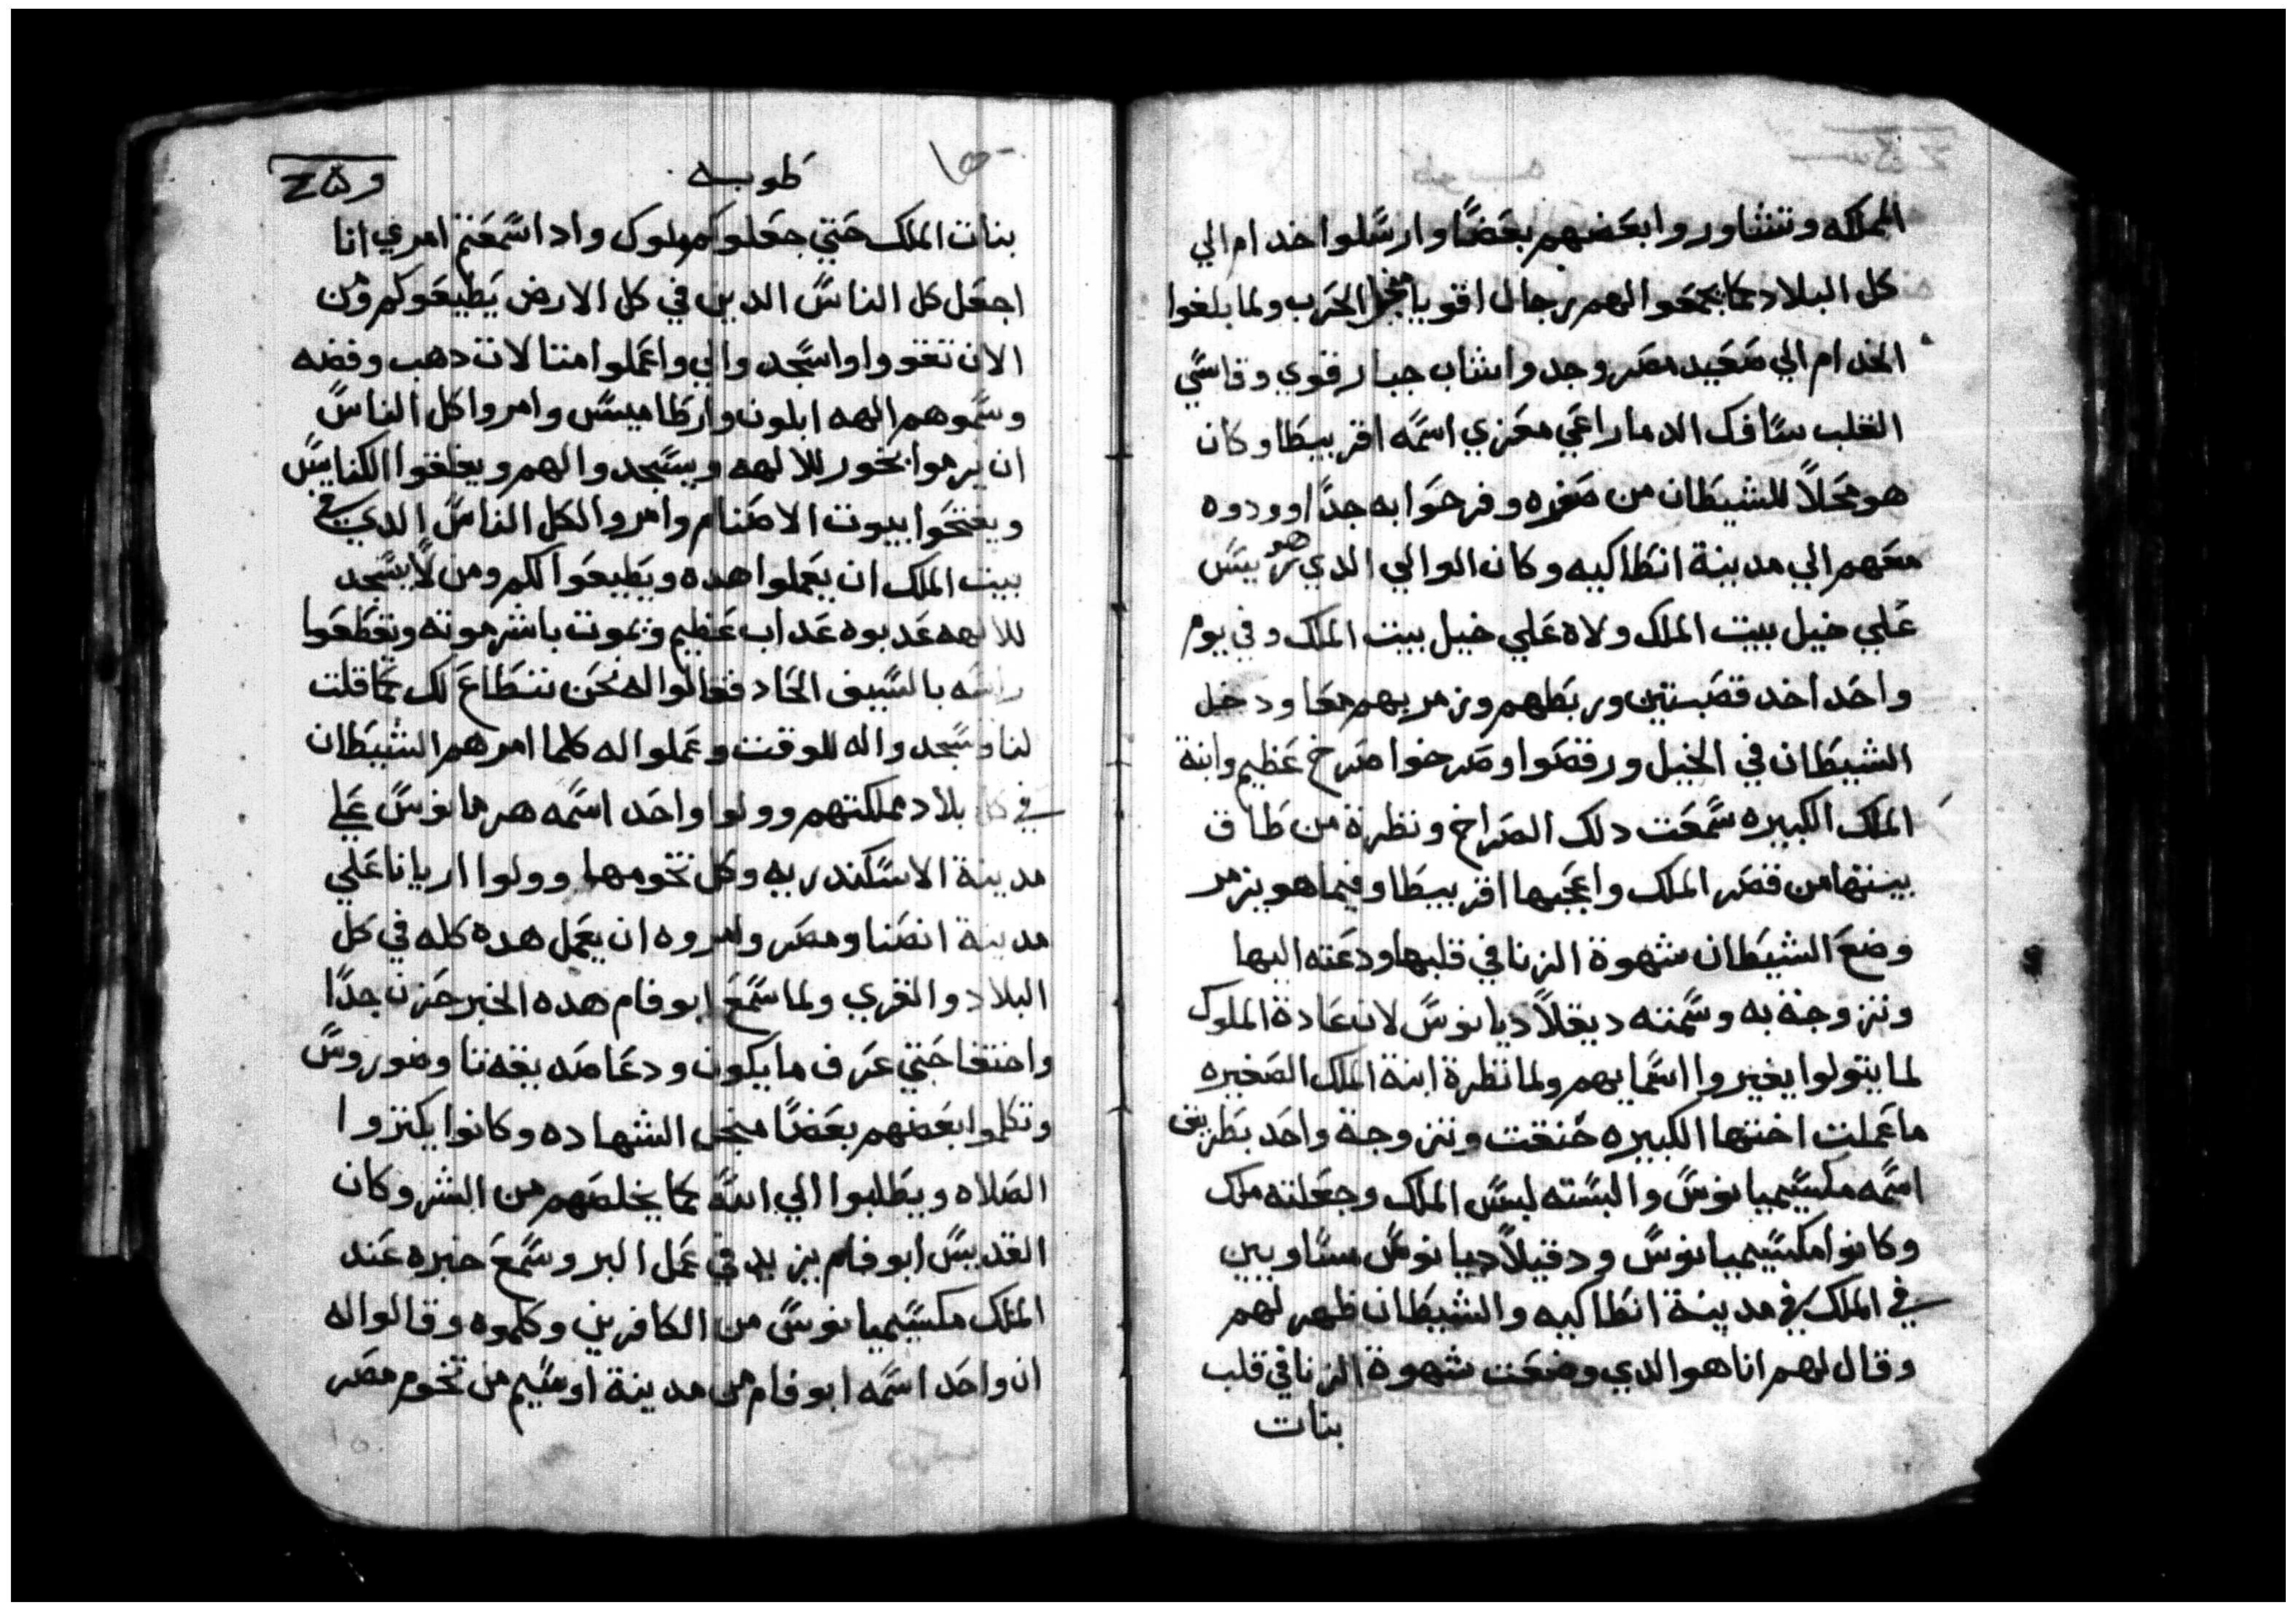 المملكه وتشاوروا بعضهم بعضًا وارسلوا خدام الي
كل البلاد كما يجمعوا لهم رجال اقويا منجل الحرب ولما بلغوا
الخدام الي صعيد مصر وجدوا شاب جبار قوي وقاسي
القلب سافك الدما راعي معزي اسمه اقريبيطا وكان
هو محلاً للشيطان من صغره وفرحوا به جدًا وودوه
معهم الي مدينة انطاكيه وكان الوالي الدي هو
علي خيل بيت الملك ولاه علي خيل بيت الملك وفي يوم
واحد اخد قصبتين وربطهم وزمر بهم معا ودخل
الشيطان في الخيل ورقصوا وصرخوا صرخ عظيم وابنة
الملك الكبيره سمعت دلك الصراخ ونظرة من طاق
بيتها من قصر الملك واعجبها اقريبيطا وفيما هو يزمر
وضع الشيطان شهوة الزنا في قلبها ودعته اليها
وتزوجة به وسمته ديقلاديانوس لان عادة الملوك
لما يتولوا يغيروا اسمايهم ولما نظرة ابنة الملك الصغيره
ما عملت اختها الكبيره حنقت وتزوجة واحد بطريق
اسمه مكسيميانوس والبسته لبس الملك وجعلته ملك
وكانوا مكسيميانوس ودقيلاديانوس متساويين
في الملك في مدينة انطاكيه والشيطان ظهر لهم
وقال لهم انا هو الدي وضعت شهوة الزنا في قلب
بنات
طوبه
بنات الملك حتي جعلوكم ملوك وادا سمعتم امري انا
اجعل كل الناس الدين في كل الارض يطيعوكم ومن
الان تقووا واسجدوا لي واعملوا متالات دهب وفضه
وسموهم الهه ابلون وارطاميس وامروا كل الناس
ان يرموا بخور للالهه ويسجدوا لهم ويغلقوا الكنايس
ويفتحوا بيوت الاصنام وامروا لكل الناس الدي في
بيت الملك ان يعملوا هده ويطيعوا لكم ومن لا يسجد
للالهه عدبوه عداب عظيم ويموت باشر موته وتقطعوا
راسه بالسيف الحاد فقالوا له نحن نتطاع لك كما قلت
لنا وسجدوا له للوقت وعملوا له كلما امرهم الشيطان
في كل بلاد مملكتهم وولوا واحد اسمه هرمانوس علي
مدينة الاسكندريه وكل تخومها وولوا اريانا علي
مدينة انصنا ومصر وامروه ان يعمل هده كله في كل
البلاد والقري ولما سمع ابو فام هده الخبر حزن جدًا
واختفا حتي عرف ما يكون ودعا صديقه تناوضوروس
وتكلموا بعضهم بعضًا منجل الشهاده وكانوا يكتروا
الصلاه ويطلبوا الي الله كما يخلصهم من الشر وكان
القديس ابو فام يزيد في عمل البر وسمع خبره عند
الملك مكسيميانوس من الكافرين وكلموه وقالوا له
ان واحد اسمه ابو فام من مدينة اوسيم من تخوم مصر